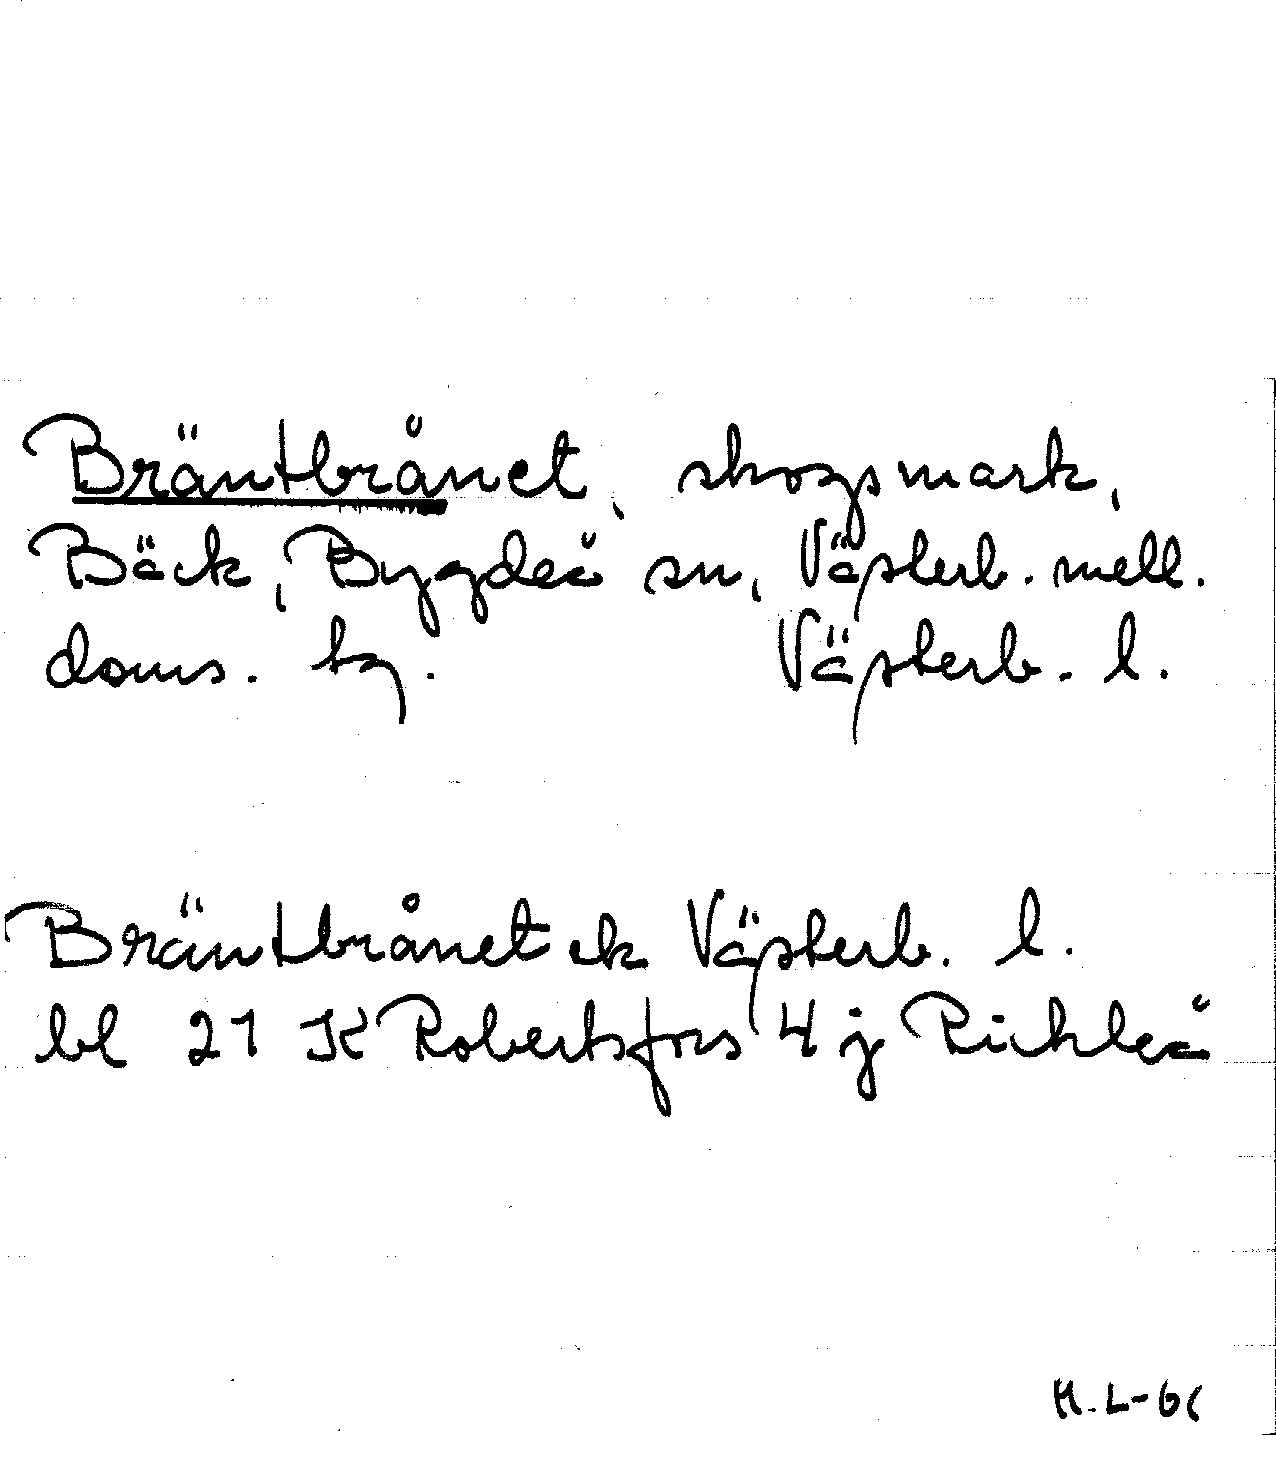 Bräntbrånet, skogsmark,
Bäck, Bygdeå sn, Västerb. mell.
doms. tg. Västerb. l.
Bräntbrånet ek Västerb. l.
bl 21 K Robertsfors 4 j Rickleå
H.L-